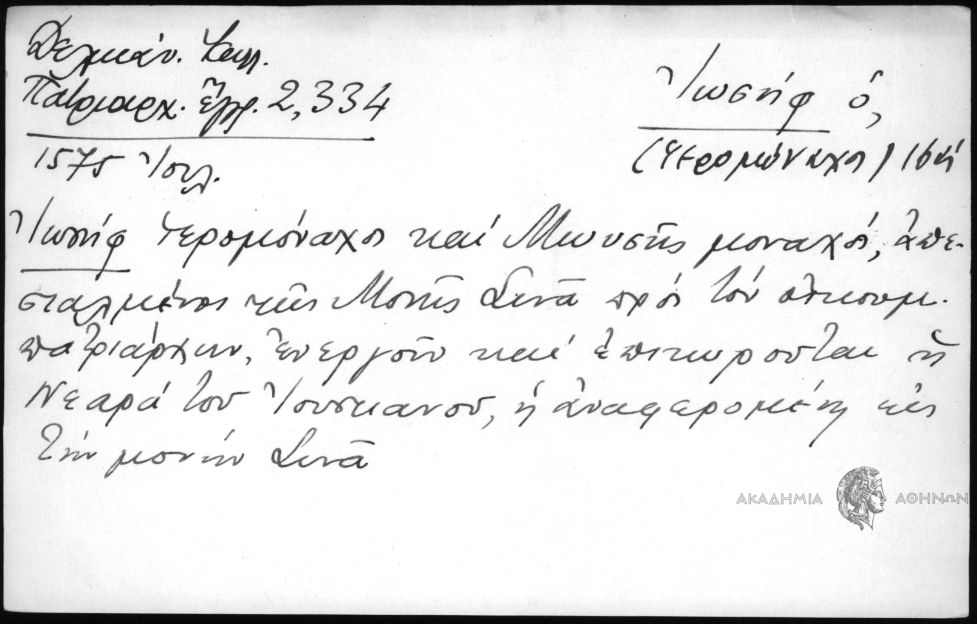 Δελικάν. Καλλ.
Πατριαρχ. Ἔγγρ. 2, 334
1575 Ἰουλ.
Ἰωσήφ ὁ,
(Ἱερομόναχος) 16ος
Ἰωσήφ Ἱερομόναχος καί Μωυσῆς μοναχός, ἀπε-
σταλμένοι τῆς Μονῆς Σινᾶ πρός τόν οἰκουμ.
πατριάρχην, ἐνεργοῦν καί ἐπικυροῦται ἡ
Νεαρά τοῦ Ἰουστινιανοῦ, ἡ ἀναφερομένη εἰς
τήν μονήν Σινᾶ
ΑΚΑΔΗΜΙΑ ΑΘΗΝΩΝ